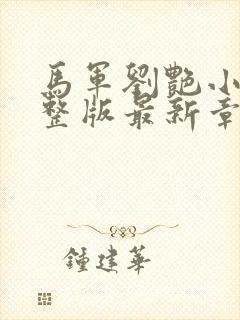 馬軍劉艷小
整版最新章
鍾建華